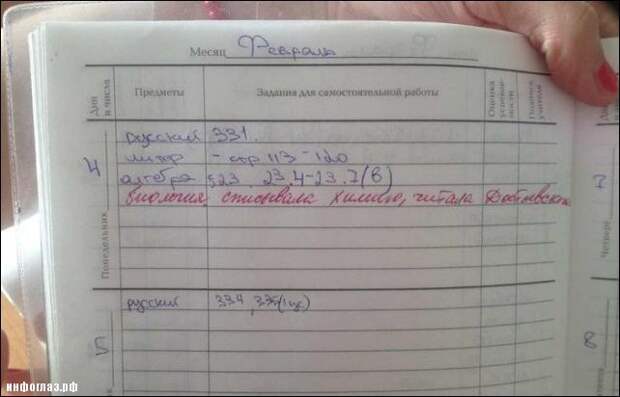 Месяц Февраль
Дни и числа Предметы Задания для самостоятельной работы Оценка успеваемости Подпись учителя
Понедельник 4
русский 331.
литер - стр 113-120
алгебра §23 23.4-23.7(в)
биология, списывала химию, читала Достоевского
5
русский 334, 335(1
Четверг 7
8
инфоглаз.рф